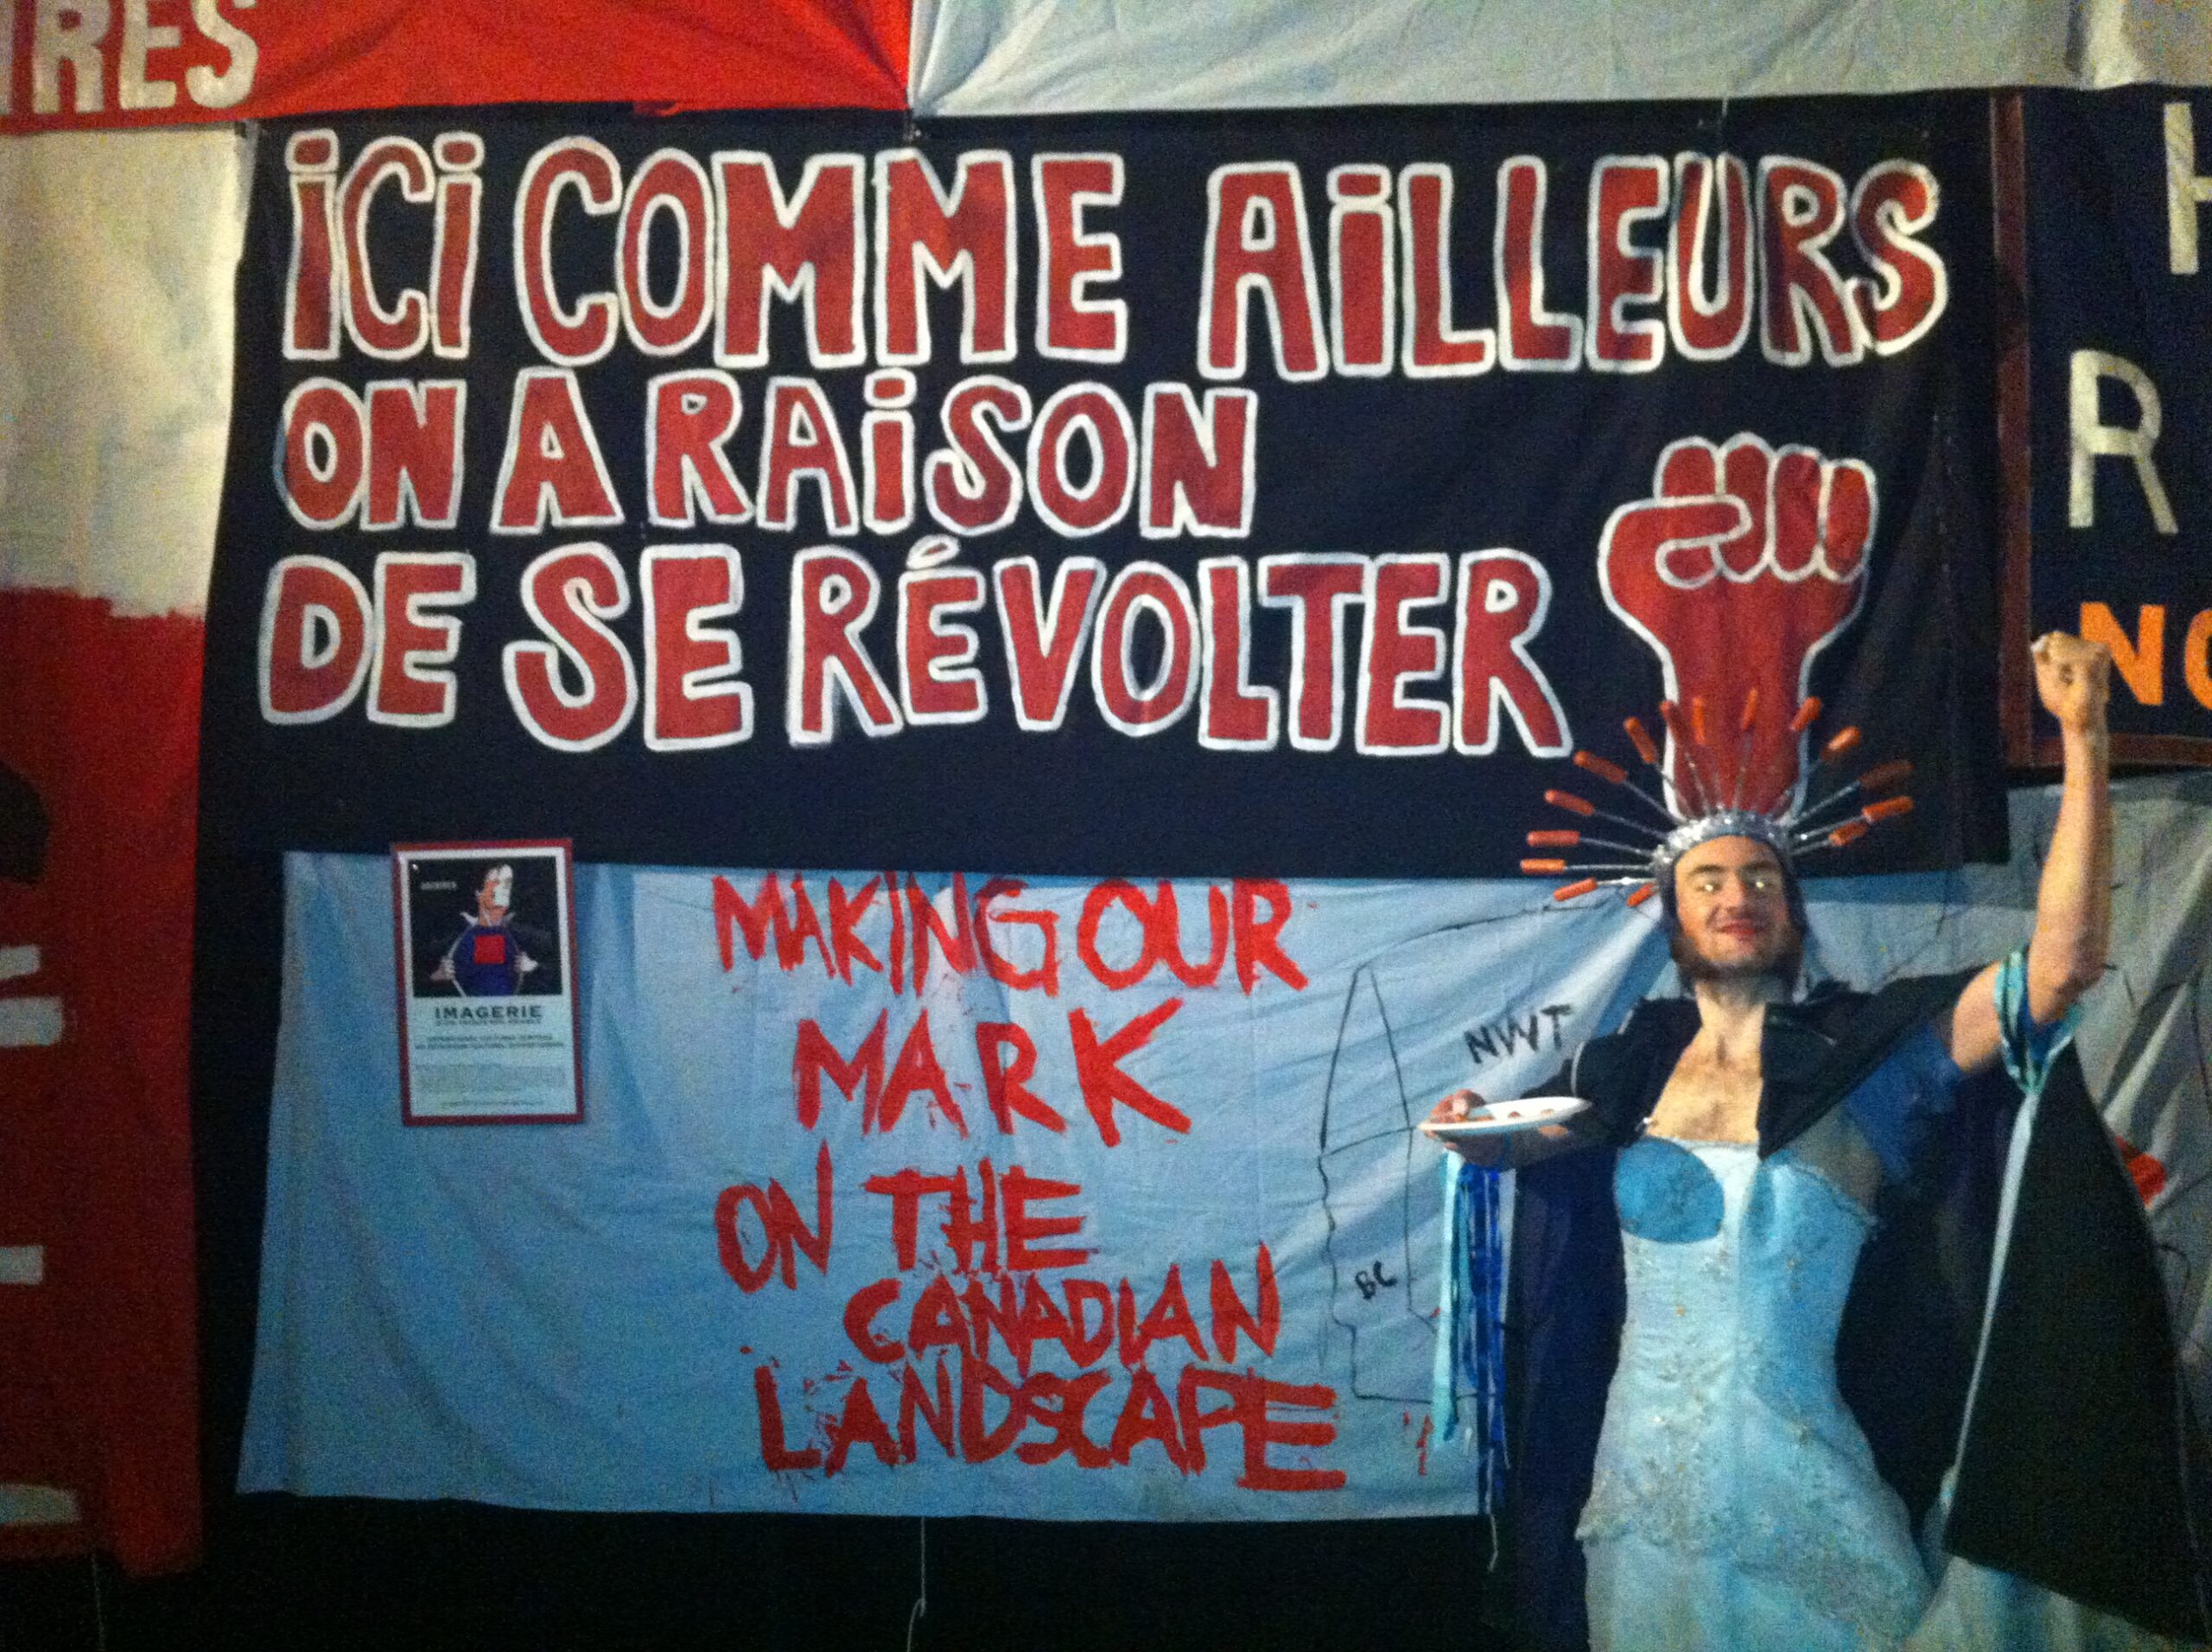 RES
iCi COMME AiLLEURS
ON A RAiSON
DE SE RÉVOLTER
H
R
NO
IMAGERIE
MAKING OUR
MARK
ON THE
CANADIAN
LANDSCAPE
NWT
BC